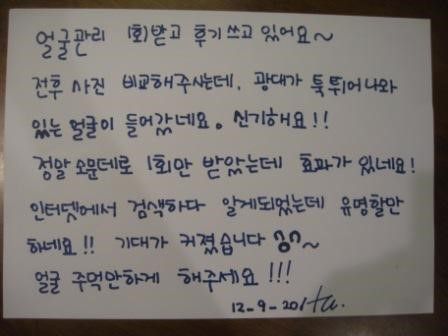 얼굴관리 1회받고 후기쓰고 있어요~
전후 사진 비교해주시는데, 광대가 툭 튀어나와
있는 얼굴이 들어갔네요. 신기해요!!
정말 소문데로 1회만 받았는데 효과가 있네요!
인터넷에서 검색하다 알게되었는데 유명할만
하네요!! 기대가 커졌습니다 ^^~
얼굴 주먹만하게 해주세요!!!
12-9-20